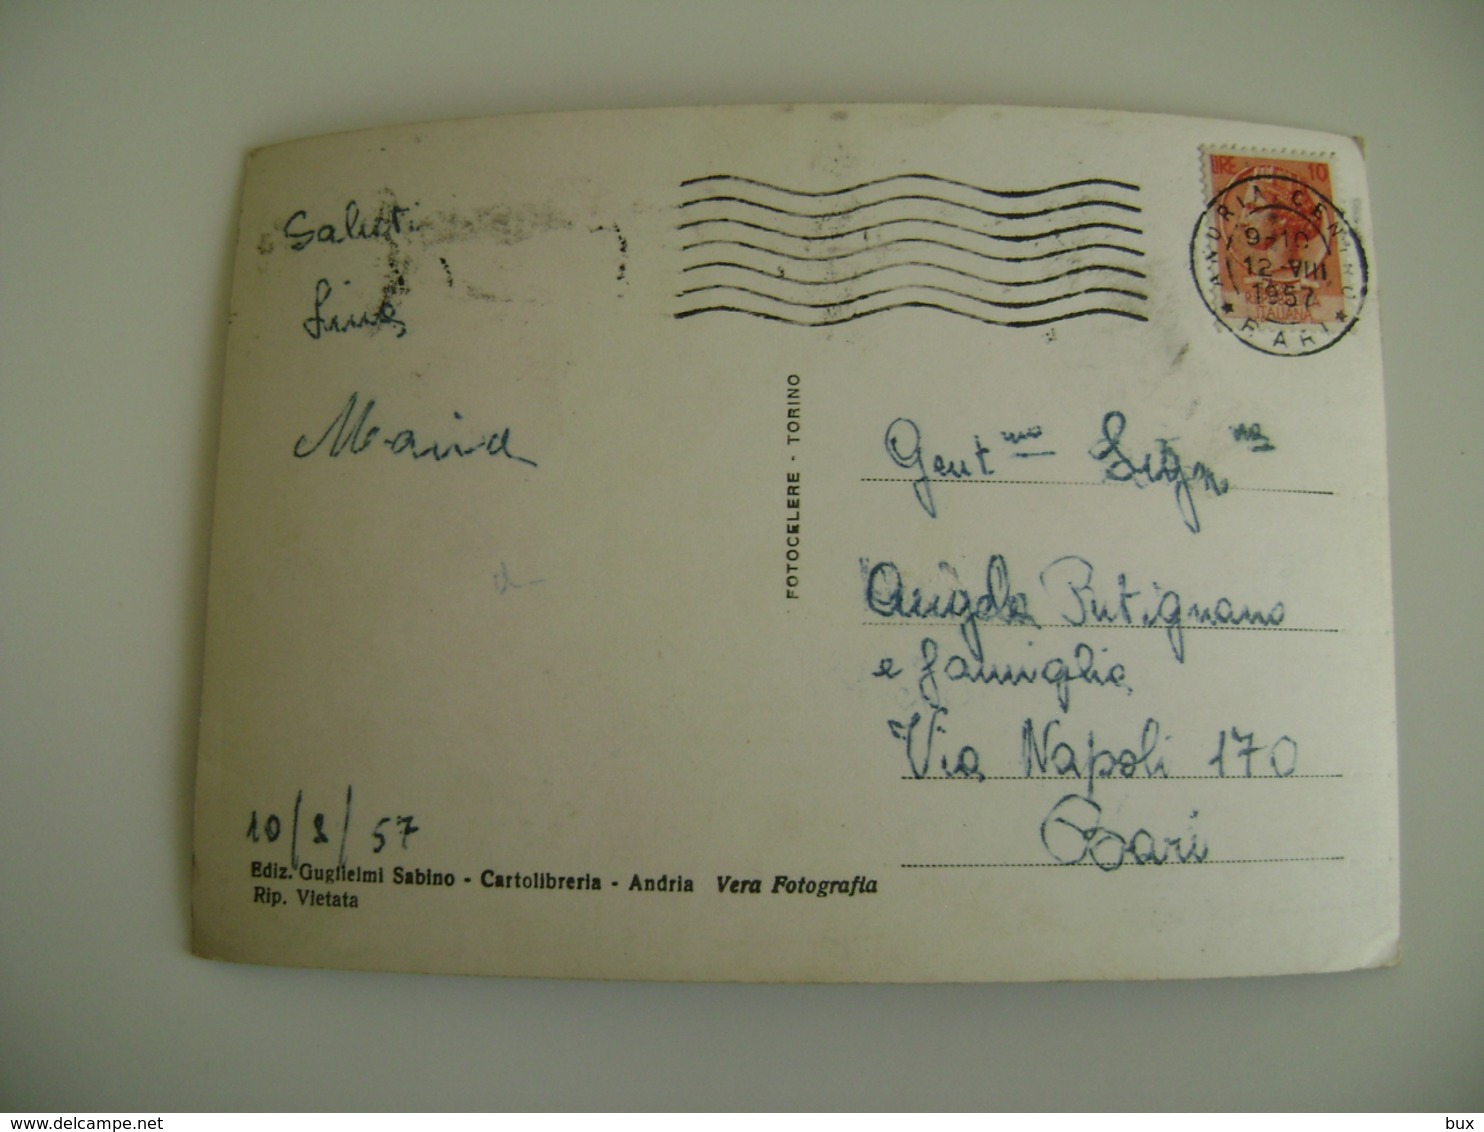 Saluti
Maria
10/8/57
Ediz. Guglielmi Sabino - Cartolibreria - Andria Vera Fotografia
Rip. Vietata
FOTOCELERE - TORINO
LIRE 10
ANDRIA CENTRO
9-10
12-VIII
1957
REPUBBLICA
ITALIANA
* BARI *
Gent.ma Sign.na
Angela Putignano
e famiglia
Via Napoli 170
Bari
bux